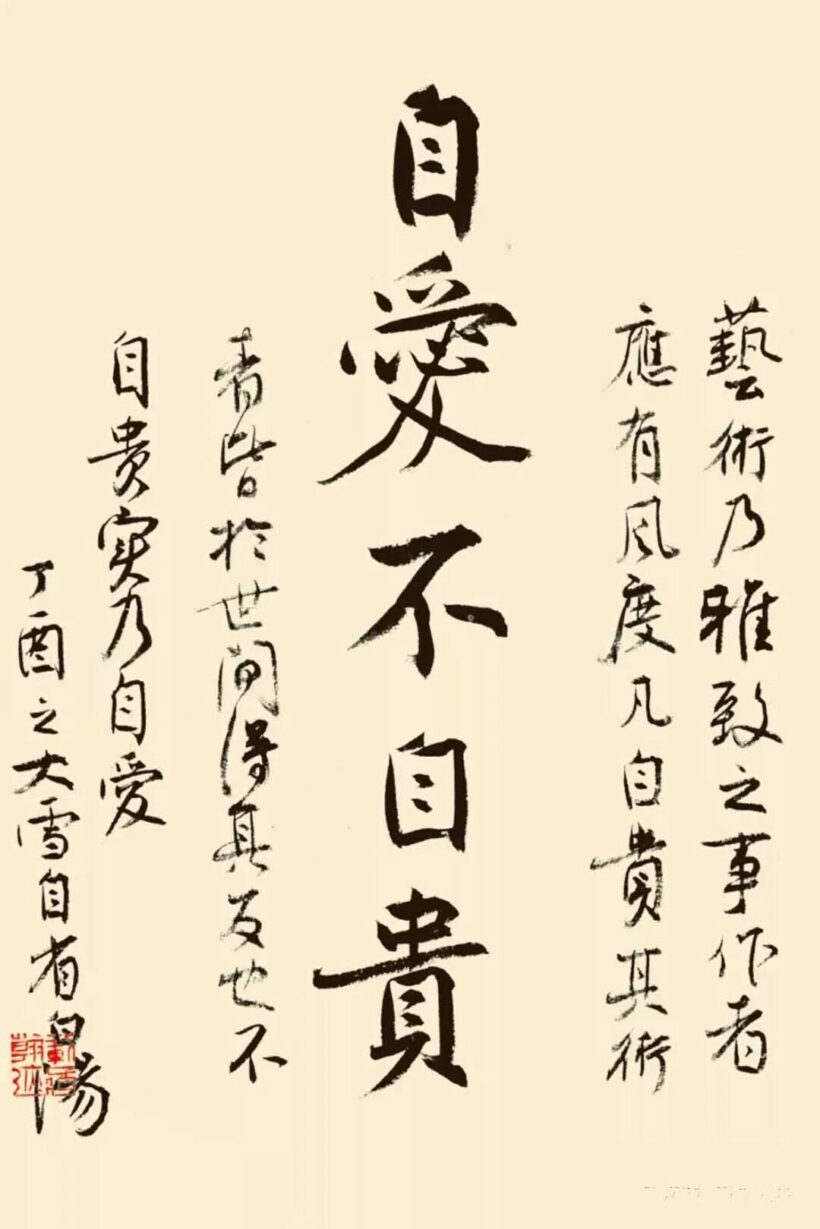 藝術乃雅致之事作者
應有風度凡自貴其術
自愛不自貴
者皆於世間得其反也不
自貴实乃自愛
丁酉之大雪自有白陽